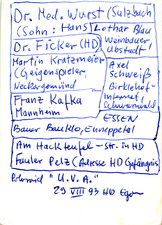 Dr. Med. Wurst (Sulzbach)
(Sohn: Hans)
Lothar Blau
Weinbauer
Ubstadt
Dr. Ficker (HD)
Martin Kratzmeier
(Geigenspieler,
Neckargemünd
Axel
Schweiß
Birklehof-
Internat,
Schwarzwald
Franz Kafka
Mannheim
ESSEN
Bauer Bauklo, Ennepetal
Am Hackteufel-Str. in HD
Fauler Pelz (Adresse HD Gefängnis)
"U.V.A."
29 VIII 93 HD